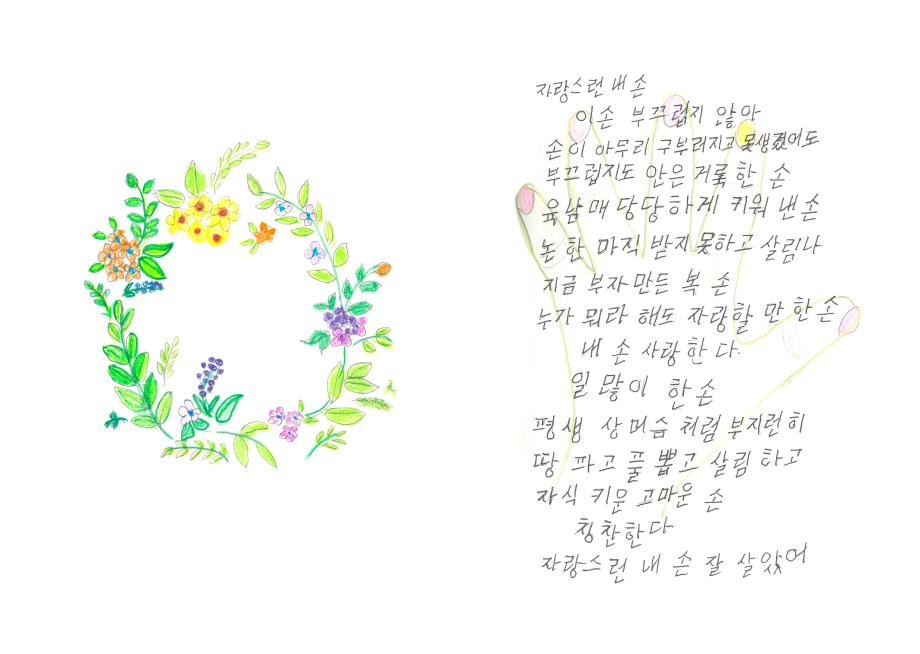 자랑스런 내 손
이손 부끄럽지 않아
손이 아무리 구부러지고 못생겼어도
부끄럽지도 안은 거룩한 손
육남매 당당하게 키워 낸손
논 한 마직 받지못하고 살림나
지금 부자 만든 복 손
누가 뭐라 해도 자랑할 만 한 손
내 손 사랑한다.
일 많이 한손
평생 상머슴 처럼 부지런히
땅 파고 풀 뽑고 살림 하고
자식 키운 고마운 손
칭찬한다
자랑스런 내 손 잘 살았어